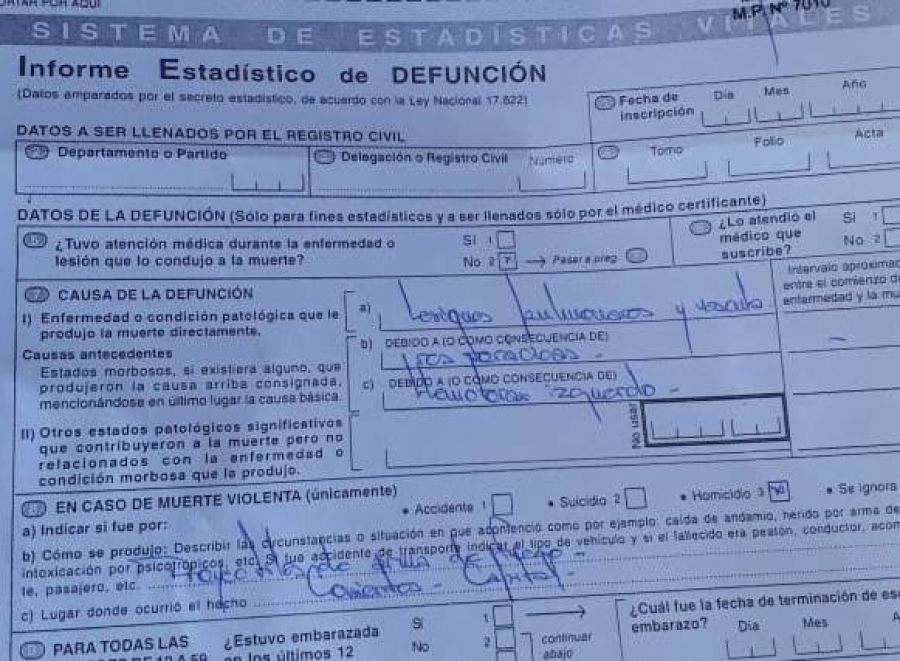 M.P. Nº 7010
SISTEMA DE ESTADÍSTICAS VITALES
Informe Estadístico de DEFUNCIÓN
(Datos amparados por el secreto estadístico, de acuerdo con la Ley Nacional 17.622)
Fecha de inscripción Día Mes Año
DATOS A SER LLENADOS POR EL REGISTRO CIVIL
Departamento o Partido
Delegación o Registro Civil Número
Tomo Folio Acta
DATOS DE LA DEFUNCIÓN (Sólo para fines estadísticos y a ser llenados sólo por el médico certificante)
¿Tuvo atención médica durante la enfermedad o
lesión que lo condujo a la muerte?
Sí 1
No 2 → Pasar a preg.
¿Lo atendió el
médico que
suscribe?
Sí 1
No 2
CAUSA DE LA DEFUNCIÓN
I) Enfermedad o condición patológica que le
produjo la muerte directamente.
Causas antecedentes
Estados morbosos, si existiera alguno, que
produjeron la causa arriba consignada,
mencionándose en último lugar la causa básica.
II) Otros estados patológicos significativos
que contribuyeron a la muerte pero no
relacionados con la enfermedad o
condición morbosa que la produjo.
a) Lesiones pulmonares y
b) DEBIDO A (O COMO CONSECUENCIA DE)
c) DEBIDO A (O COMO CONSECUENCIA DE)
Hemotorax izquierdo -
No usar
Intervalo aproximad
entre el comienzo de
enfermedad y la mu
EN CASO DE MUERTE VIOLENTA (únicamente)
a) Indicar si fue por:
• Accidente 1 • Suicidio 2 • Homicidio 3 • Se ignora
b) Cómo se produjo: Describir las circunstancias o situación en que aconteció como por ejemplo: caída de andamio, herido por arma de
intoxicación por psicotrópicos, etc. Si fue accidente de transporte indicar el tipo de vehículo y si el fallecido era peatón, conductor, acom
te, pasajero, etc. de arma de fuego -
c) Lugar donde ocurrió el hecho Corrientes - Capital -
PARA TODAS LAS
¿Estuvo embarazada
en los últimos 12
Sí 1 →
No 2 continuar
abajo
¿Cuál fue la fecha de terminación de es
embarazo? Día Mes